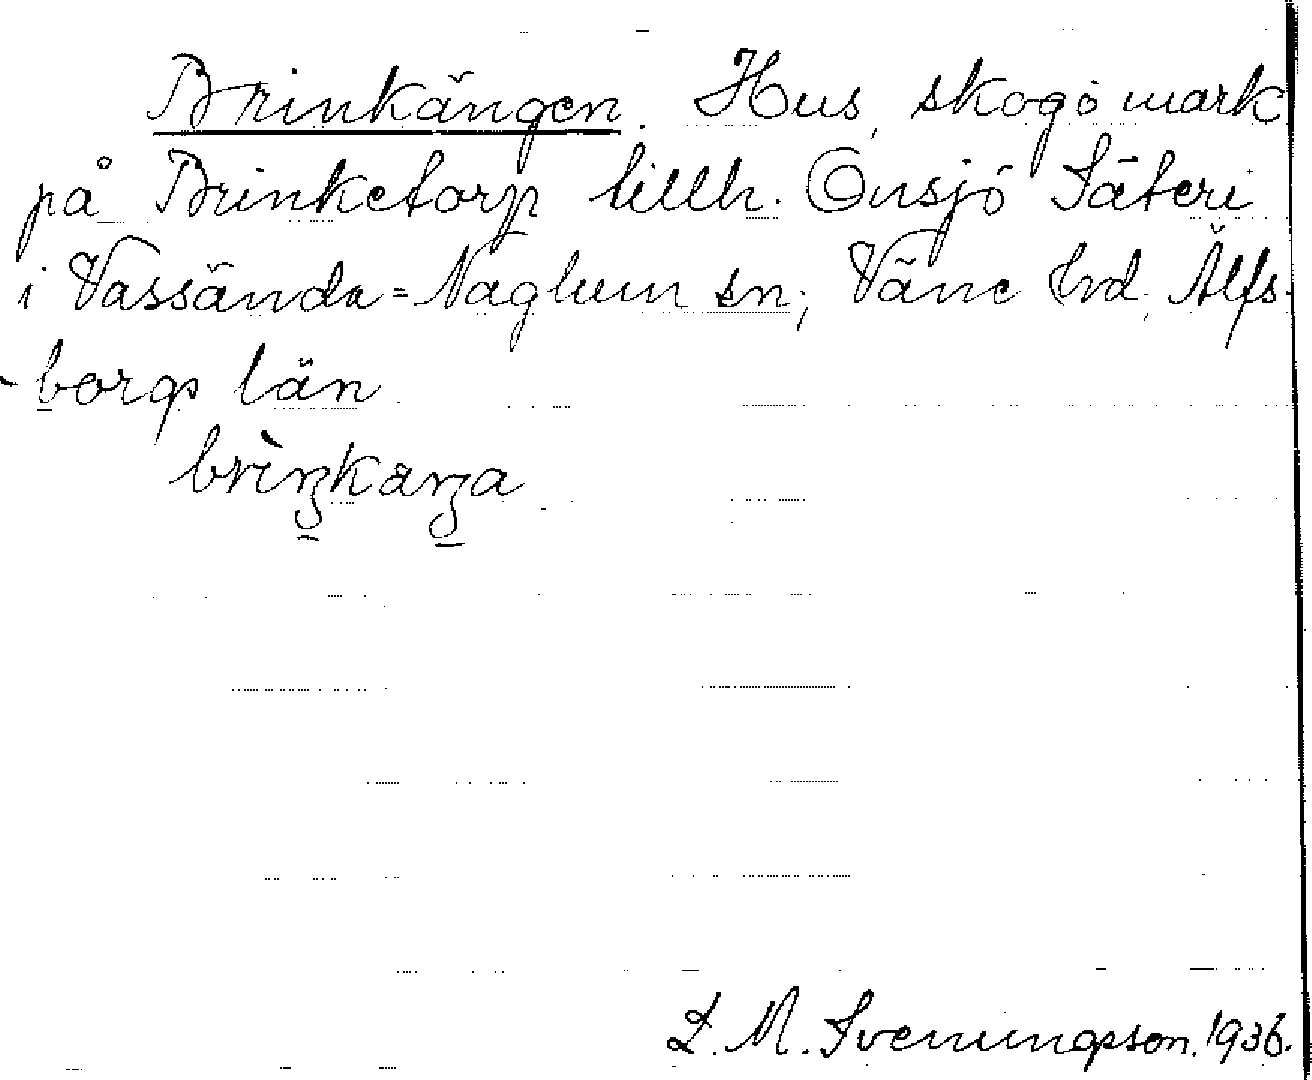 Brinkängen. Hus, skogsmark
på Brinketorp tillh. Onsjö Säteri
i Vassända=Naglum sn; Väne hrd, Älfs-
-borgs län.
L. M. Svenungsson. 1936.